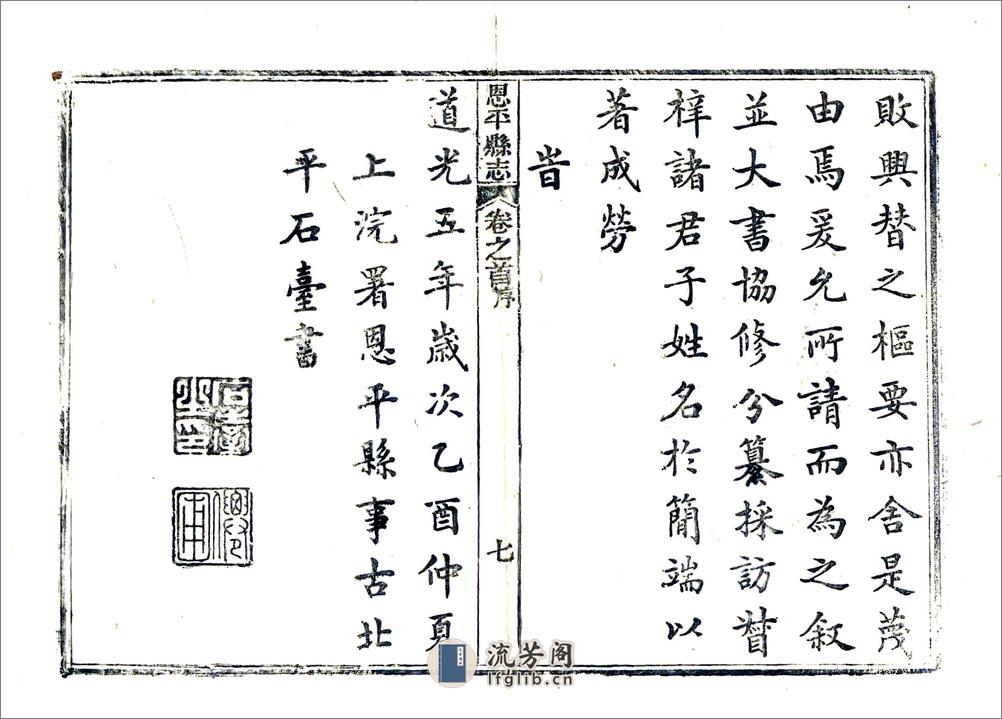 敗興替之樞要亦舍是蔑
由焉爰允所請而為之叙
並大書協修分纂採訪督
梓諸君子姓名於簡端以
著成勞
旹
恩平縣志 卷之首 序 七
道光五年歲次乙酉仲夏
上浣署恩平縣事古北
平石臺書
流芳阁
lfglib.cn